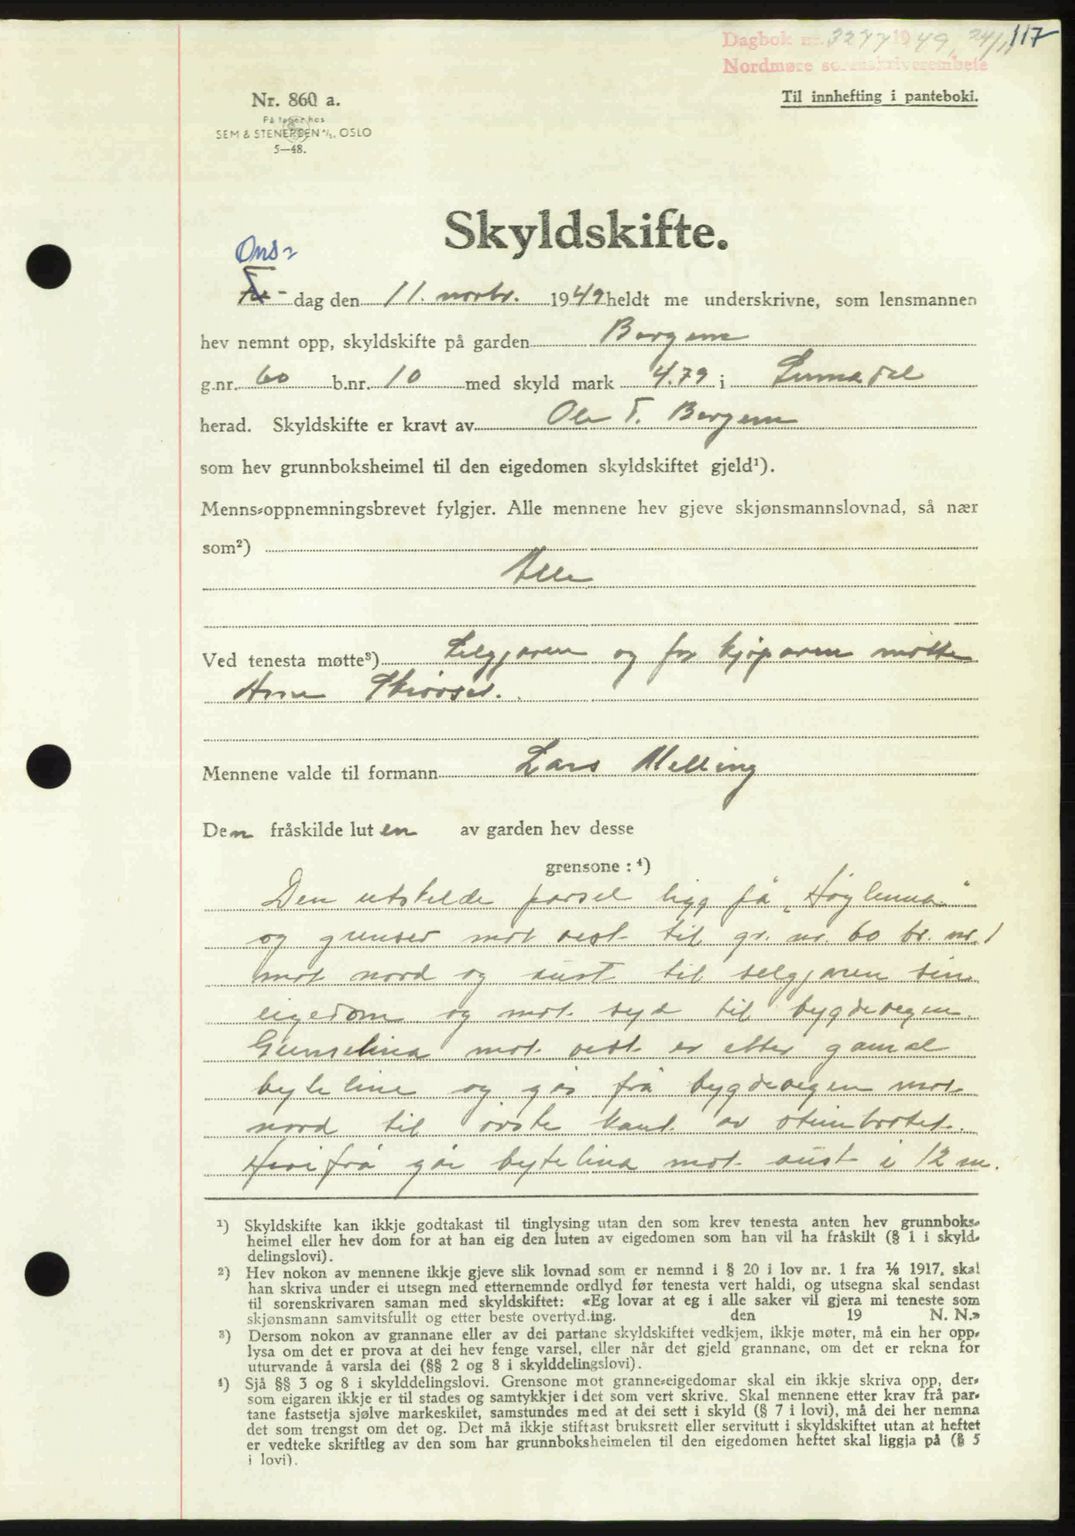 117
Dagbok nr. 3277 1949, 24/11
Nordmøre sorenskriverembete
Til innhefting i panteboki.
Nr. 860 a.
På lager hos
SEM & STENERSEN A/S, OSLO
5—48.
Skyldskifte.
Ons-
dag den 11. novbr. 1949 heldt me underskrivne, som lensmannen
hev nemnt opp, skyldskifte på garden Bergem
g.nr. 60 b.nr. 10 med skyld mark 4.79 i Surnadal
herad. Skyldskifte er kravt av Ole T. Bergem
som hev grunnboksheimel til den eigedomen skyldskiftet gjeld¹).
Menns-oppnemningsbrevet fylgjer. Alle mennene hev gjeve skjønsmannslovnad, så nær
som²)
Alle
Ved tenesta møtte³) Seljaren og for kjøparen møtte
Arne
Mennene valde til formann Lars Melling
Den fråskilde luten av garden hev desse
grensone : ⁴)
Den utskilde parsel ligg på "Høglunna"
og grenser mot vest til gr. nr. 60 br. nr. 1
mot nord og aust til selgjaren sin
eigedom og mot syd til bygdevegen.
Grenselina mot vest er etter gamal
byteline og går frå bygdevegen mot
nord til øvste kant av steinbrotet.
Herifrå går bytelina mot aust i 12 m.
¹) Skyldskifte kan ikkje godtakast til tinglysing utan den som krev tenesta anten hev grunnboks-
heimel eller hev dom for at han eig den luten av eigedomen som han vil ha fråskilt (§ 1 i skyld-
delingslovi).
²) Hev nokon av mennene ikkje gjeve slik lovnad som er nemnd i § 20 i lov nr. 1 fra 1/6 1917, skal
han skriva under ei utsegn med etternemnde ordlyd før tenesta vert haldi, og utsegna skal sendast
til sorenskrivaren saman med skyldskiftet: «Eg lovar at eg i alle saker vil gjera mi teneste som
skjønsmann samvitsfullt og etter beste overtyding. den 19 N. N.»
³) Dersom nokon av grannane eller av dei partane skyldskiftet vedkjem, ikkje møter, må ein her opp-
lysa om det er prova at dei hev fenge varsel, eller når det gjeld grannane, om det er rekna for
uturvande å varsla dei (§§ 2 og 8 i skylddelingslovi).
⁴) Sjå §§ 3 og 8 i skylddelingslovi. Grensone mot granne-eigedomar skal ein ikkje skriva opp, der-
som eigaren ikkje er til stades og samtykkjer i det som vert skrive. Skal mennene etter krav frå par-
tane fastsetja sjølve markeskilet, samstundes med at dei sett i skyld (§ 7 i lovi), må dei her nemna
det som trengst om det og. Det må ikkje stiftast bruksrett eller servitutt i skyldskiftet utan at heftet
er vedteke skriftleg av den som har grunnboksheimelen til den eigedomen heftet skal liggja på (§ 5
i lovi).